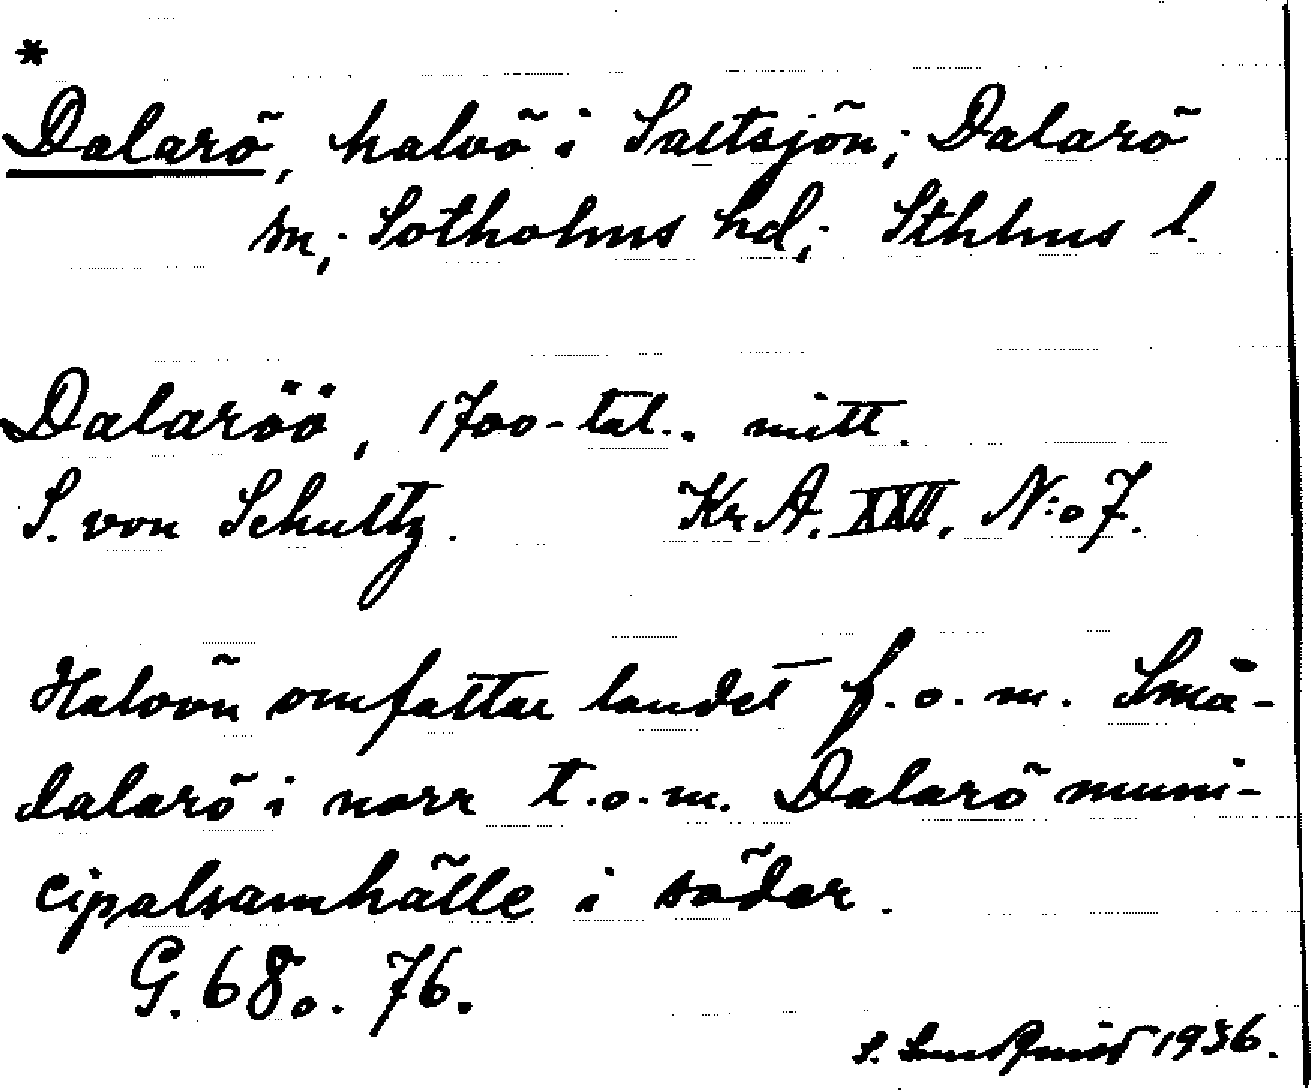 *
Dalarö, halvö i Saltsjön; Dalarö
sn; Sotholms hd; Sthlms l.
Dalaröö, 1700-tal. mitt.
S. von Schultz. Kr A. XXII. N:o 7.
Halvön omfattar landet f.o.m. Små-
dalarö i norr t.o.m. Dalarö muni-
cipalsamhälle i söder.
G. 68o. 76.
S. 1936.